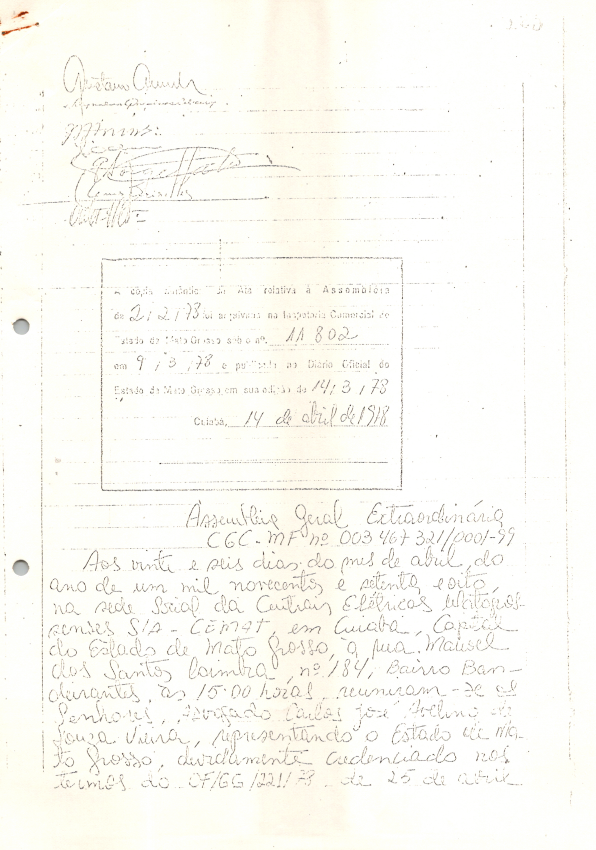 A cópia autêntica da Ata relativa à Assembléia
de 2/2/78 foi arquivada na Inspetoria Comercial de
Estado de Mato Grosso sob o nº. 11 802
em 9/3/78 e publicada no Diário Oficial do
Estado de Mato Grosso, em sua edição de 14/3/78
Cuiabá, 14 de abril de 1978
Assembléia Geral Extraordinária
CGC-MF nº 003 467 321/0001-99
Aos vinte e seis dias do mes de abril, do
ano de um mil, novecentos e setenta e oito,
na sede Social da Centrais Elétricas Matogros-
senses S/A - CEMAT, em Cuiabá, Capital
do Estado de Mato Grosso, a rua Manoel
dos Santos Coimbra, nº 184, Bairro Ban-
deirantes, as 15:00 horas, reuniram-se os
Senhores, Advogado Carlos José Avelino de
Souza Vieira, representando o Estado de Ma-
to Grosso, devidamente credenciado nos
termos do OF/GG/221/78 de 25 de abril